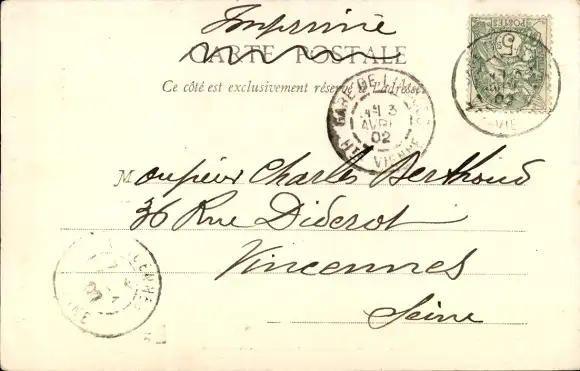 Imprimé
CARTE POSTALE
Ce côté est exclusivement réservé à l'adresse
POSTES
5
GARE DE LIMOGES
3
AVRIL
02
HTE VIENNE
02
Monsieur Charles Berthoud
36 Rue Diderot
Vincennes
Seine
VINCENNES